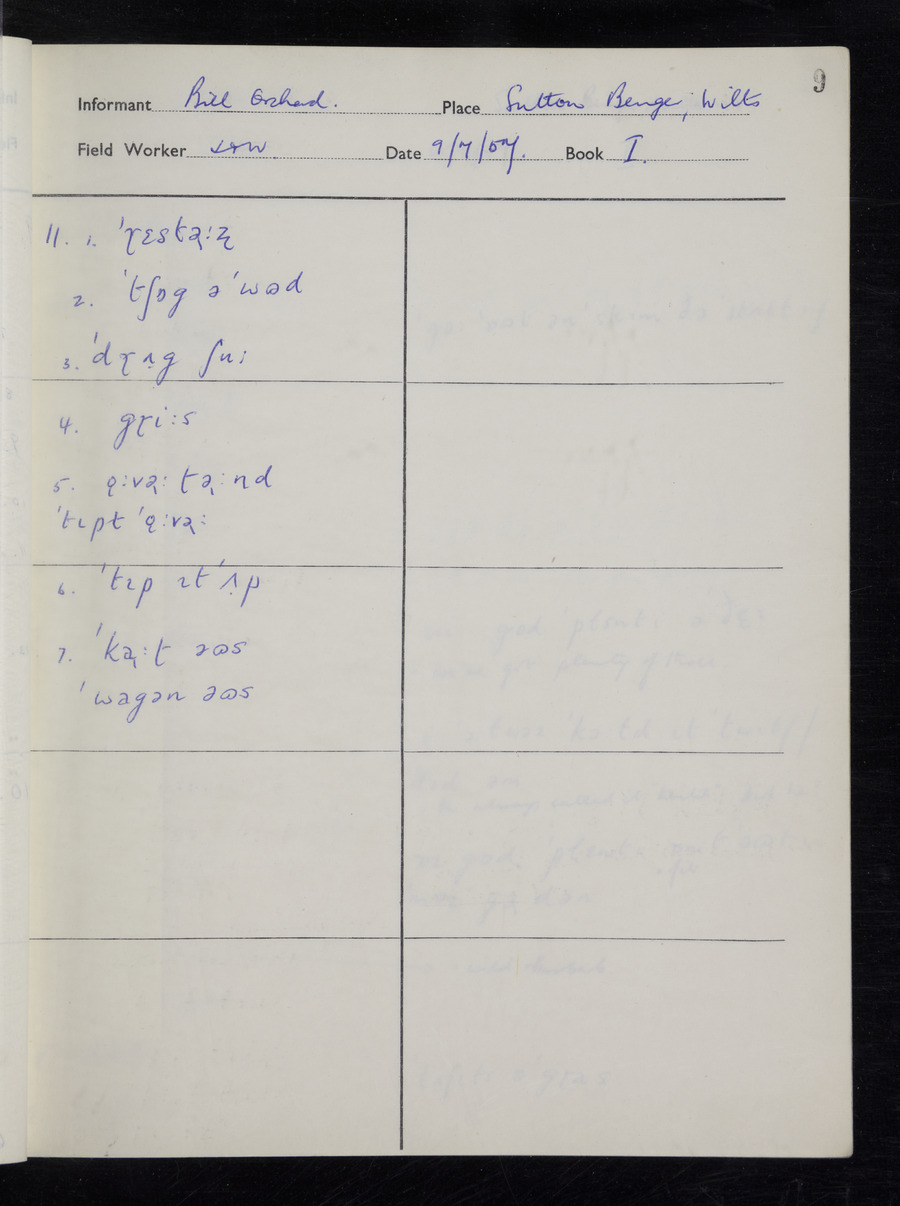 9
Informant Bill Orchard. Place Sutton Benger, Wilts
Field Worker Date 9/7/57. Book I.
11. 1. ˈɽɛstə̢ːʐ
2. ˈtʃɒg ə ˈwɷd
3. ˈdɽʌ̣g ʃuː
4. gɽiːs
5. ɒ̢ːvə̢ː tə̢ːnd
ˈtɩpt ˈɒ̢ːvə̢ː
6. ˈtɩp ɩt ˈʌ̣p
7. ˈka̢ːt əɷs
ˈwagən əɷs